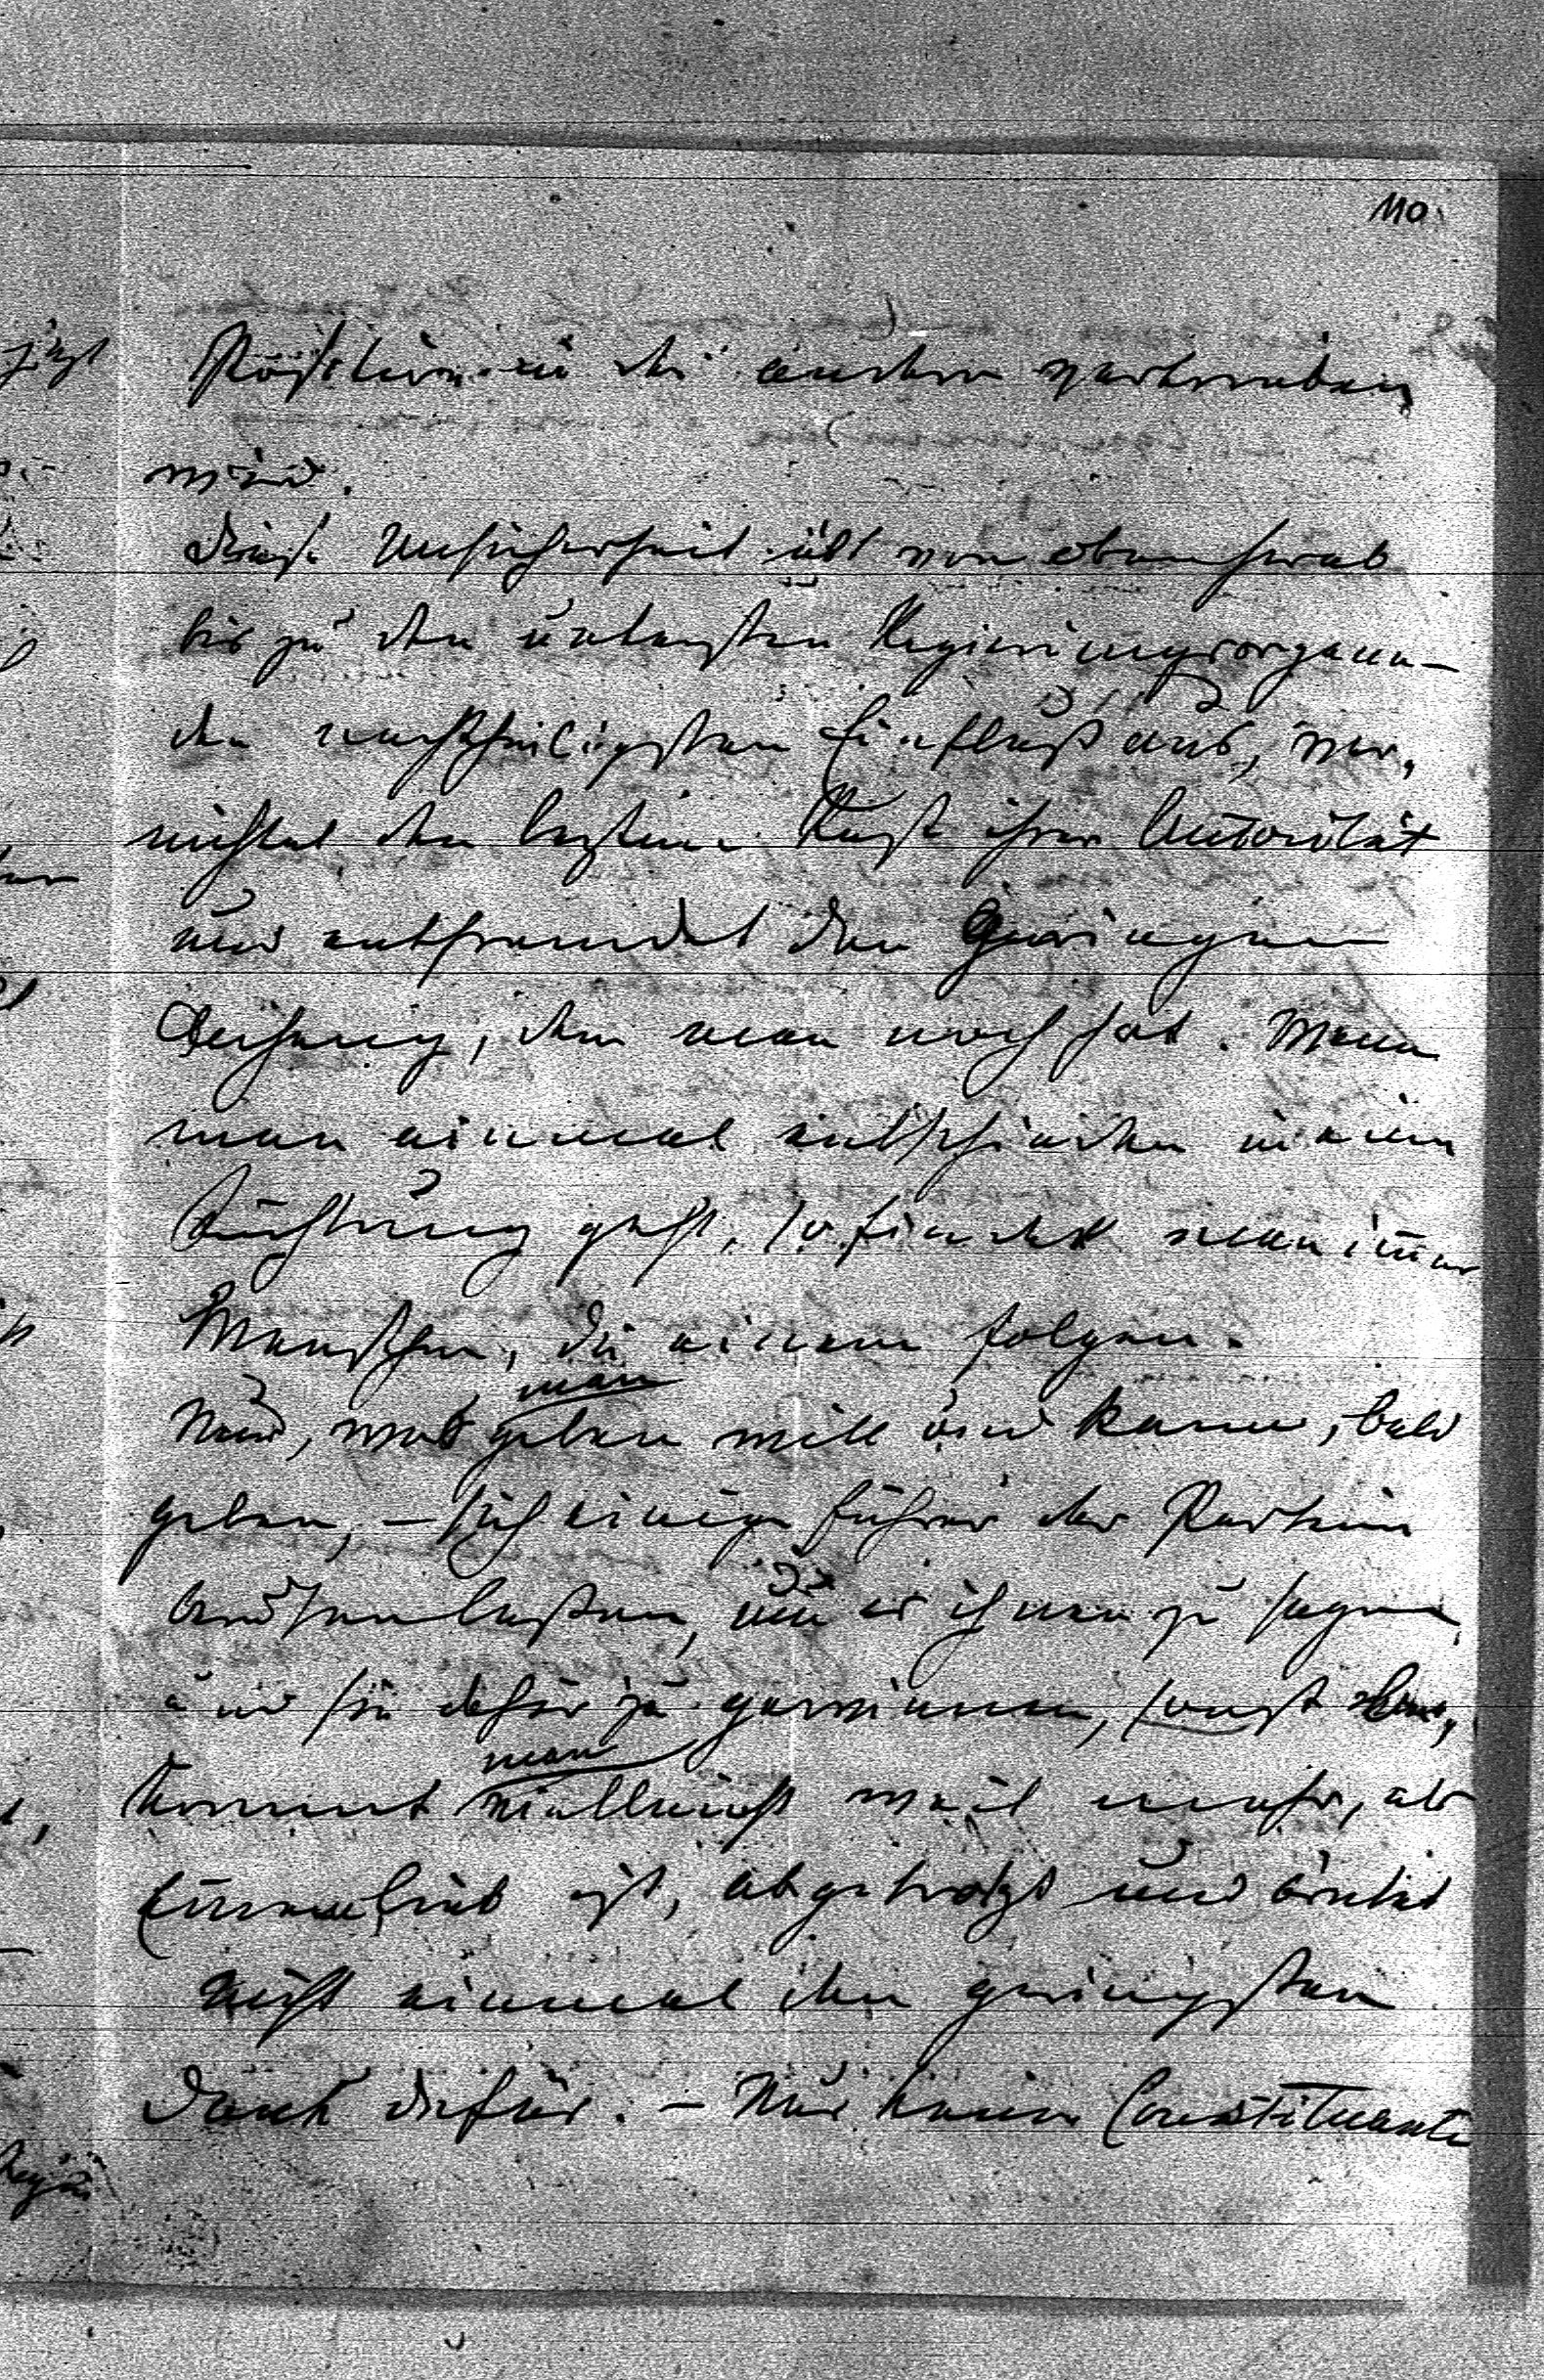 110
Position in die andere getrieben
wird.
Diese Unsicherheit übt von oben herab
bis zu den untersten Regierungsorganen
den nachtheiligsten Einfluß aus, ver-
nichtet den letzten Rest ihrer Autorität
und entfremdet den geringen
Anhang, den man noch hat. Wenn
man einmal entschieden in einer
Richtung geht, so findet man im̄er
Menschen, die einem folgen.
Nur, was man geben will und kann, bald
geben, – sich einige Führer der Partheien
kommen lassen, um es ihnen zu sagen
und sie dafür zu gewinnen, sonst
kommt man vielleicht weit mehr, als
einem lieb ist, abgetrotzt und erntet
nicht einmal den geringsten
Dank dafür. – Nur keine Constituante